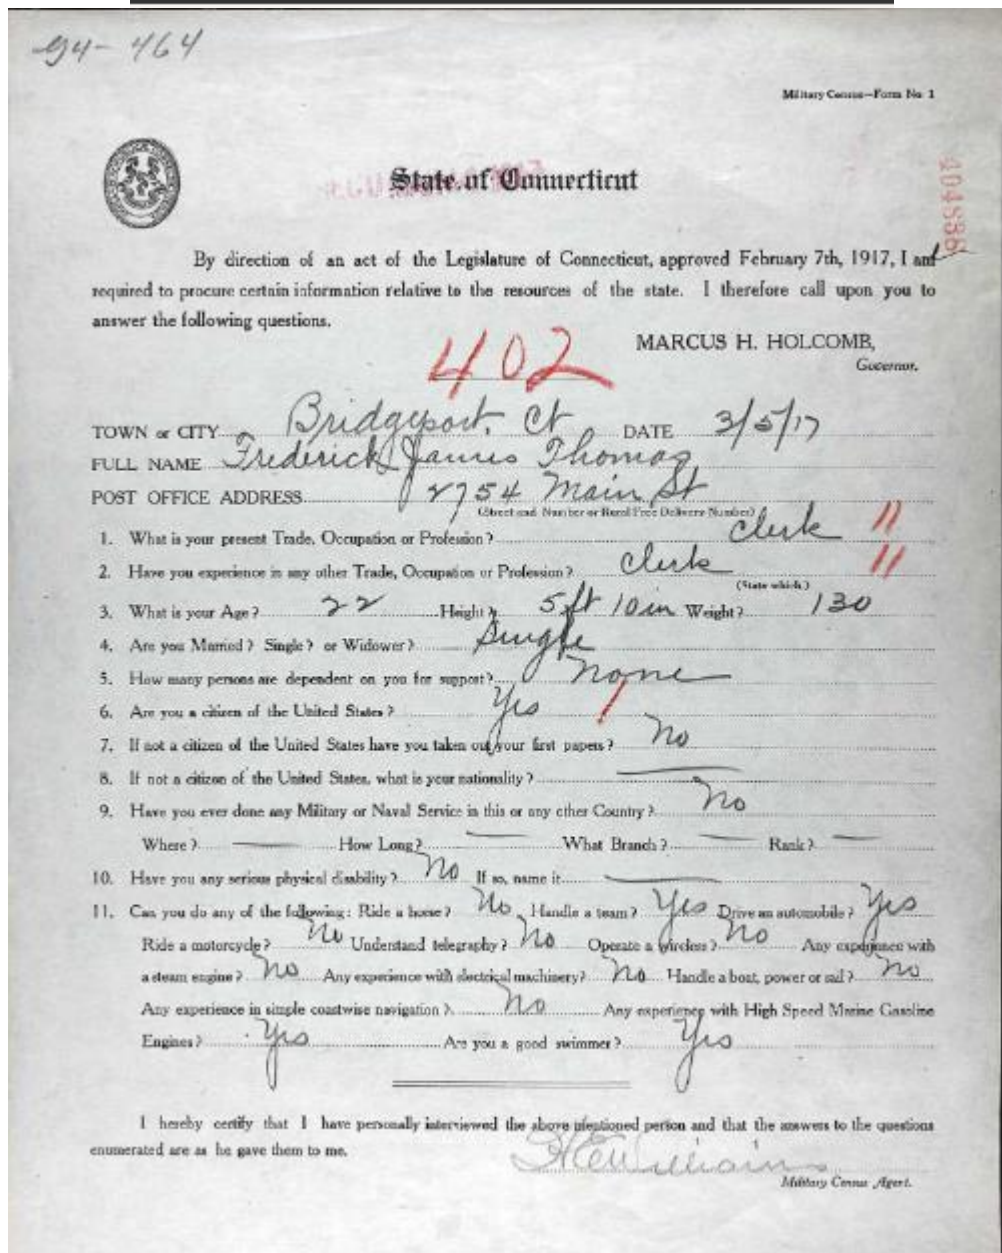 94-464
Military Census—Form No 1
State of Connecticut
By direction of an act of the Legislature of Connecticut, approved February 7th, 1917, I am
required to procure certain information relative to the resources of the state. I therefore call upon you to
answer the following questions.
MARCUS H. HOLCOMB,
Governor.
402
TOWN or CITY Bridgeport, Ct DATE 3/5/17
FULL NAME Frederick James Thomas
POST OFFICE ADDRESS 2754 Main St
(Street and Number or Rural Free Delivery Number)
1. What is your present Trade, Occupation or Profession? Clerk 11
2. Have you experience in any other Trade, Occupation or Profession? Clerk 11
(State which)
3. What is your Age? 22 Height? 5 ft 10 in Weight? 130
4. Are you Married? Single? or Widower? Single
5. How many persons are dependent on you for support? none
6. Are you a citizen of the United States? Yes /
7. If not a citizen of the United States have you taken out your first papers? No
8. If not a citizen of the United States, what is your nationality? —
9. Have you ever done any Military or Naval Service in this or any other Country? No
Where? — How Long? — What Branch? — Rank? —
10. Have you any serious physical disability? No If so, name it —
11. Can you do any of the following: Ride a horse? No Handle a team? Yes Drive an automobile? Yes
Ride a motorcycle? No Understand telegraphy? No Operate a wireless? No Any experience with
a steam engine? No Any experience with electrical machinery? No Handle a boat, power or sail? No
Any experience in simple coastwise navigation? No Any experience with High Speed Marine Gasoline
Engines? Yes Are you a good swimmer? Yes
I hereby certify that I have personally interviewed the above mentioned person and that the answers to the questions
enumerated are as he gave them to me.
H E Williams
Military Census Agent.